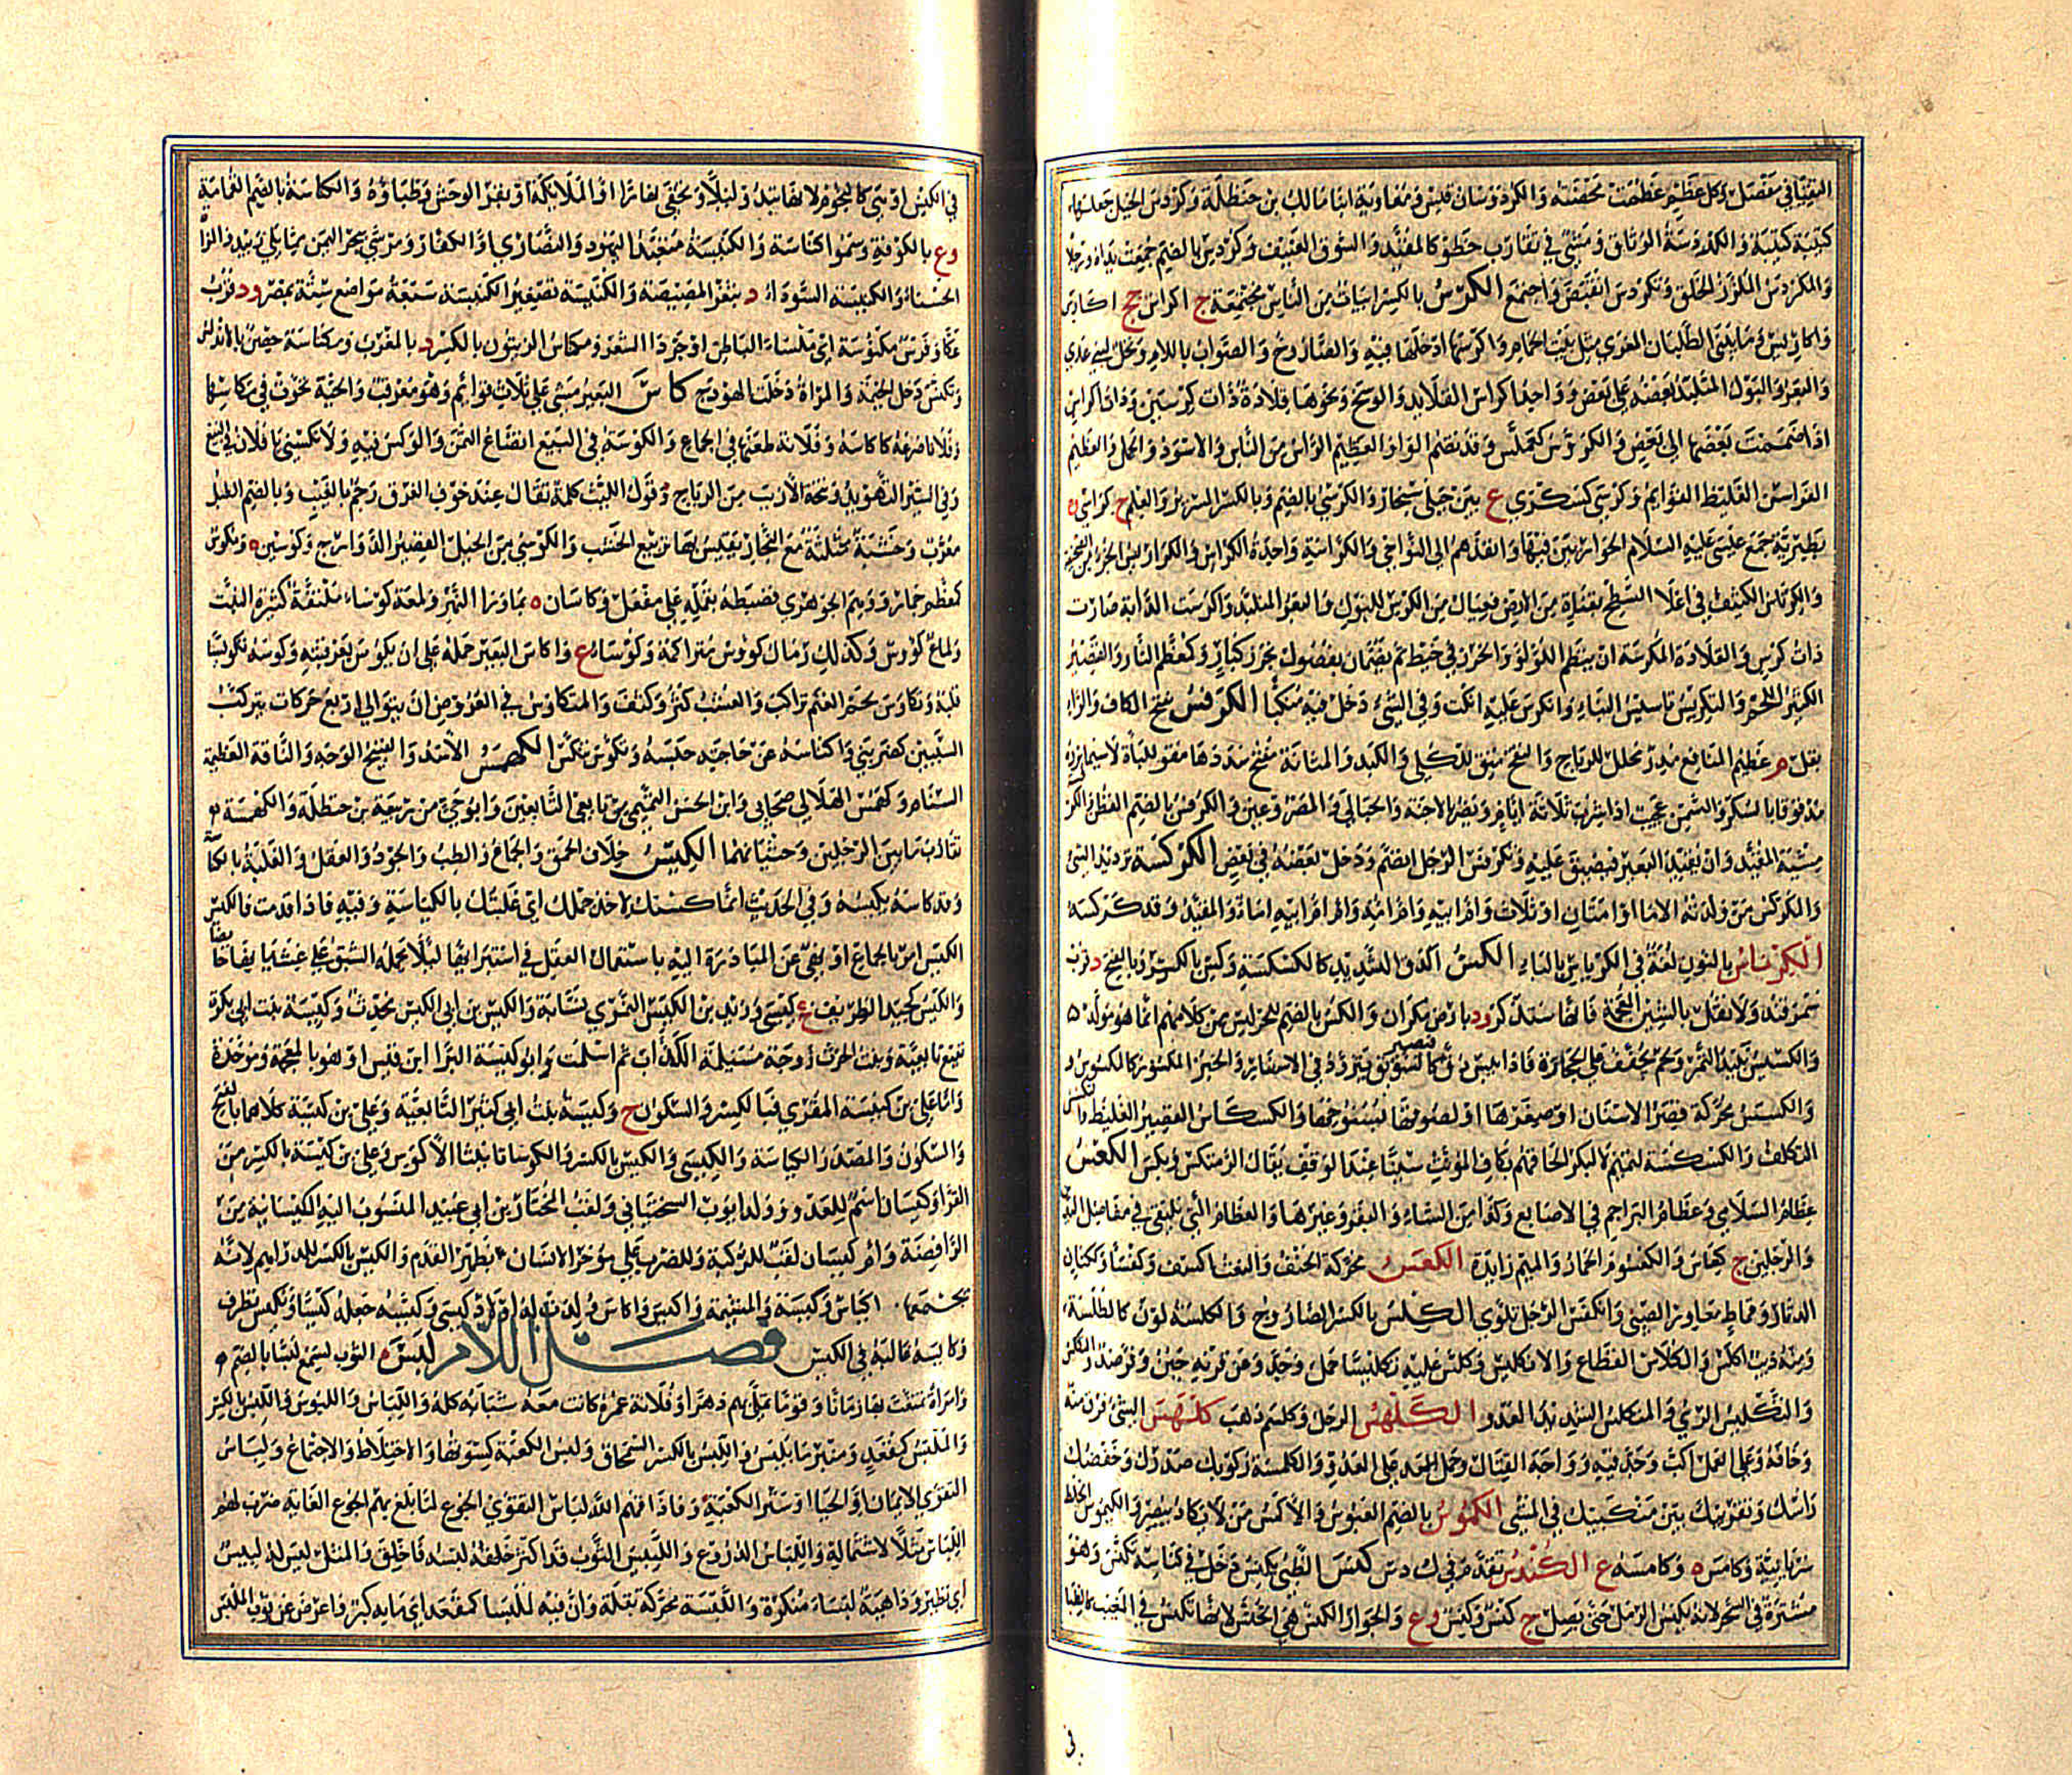 التقيا في مفصل وكل عظم عظمت نحضته والكردوسان قيس ومعاوية ابنا مالك بن حنظلة وكردس الخيل جعلها
كتيبة كتيبة والكردسة الوثاق ومشي في تقارب خطو كالمقيد والسوق العنيف وكردس بالضم جمعت يداه ورجلاه
والمكردس الملزز الخلق وتكردس انقبض واجتمع الكرس بالكسر ابيات من الناس مجتمعة ج اكراس جج اكاريس
واكاريس وما يبنى لطليان المعزى مثل بيت الحمام واكرسها ادخلها فيه والصاروج والصواب باللام ونخل لبني عدي
والبعر والبول المتلبد بعضه على بعض وواحد اكراس القلايد والوشح ونحوها قلادة ذات كرسين وذات اكراس
اذا ضممت بعضها الى بعض والكروس كعملس وقد تضم الواو العظيم الراس من الناس والاسود والجمل العظيم
الفراسن الغليظ القوايم وكرسى كسكرى ع بين جبلى سنجار والكرسي بالضم وبالكسر السرير والعلم ج كراسي و ة
بطبرية جمع عيسى عليه السلام الحواريين فيها وانفذهم الى النواحي والكراسة واحدة الكراس والكراريس الجزء من الصحيفة
والكرياس الكنيف في اعلا السطح بقناة من الارض فعيال من الكرس للبول والبعر المتلبد واكرست الدابة صارت
ذات كرس والقلادة المكرسة ان ينظم اللولو والخرز في خيط ثم يضمان بفصول بخرز كبار وكمعظم التار القصير
الكثير اللحم والتكريس تاسيس البناء وانكرس عليه انكب وفي الشيء دخل فيه منكبا الكرفس بفتح الكاف والراء
بقل م عظيم المنافع مدر محلل للرياح والنفخ منق للكلى والكبد والمثانة مفتح سددها مقو للباءة لاسيما بزره
مدقوقا بالسكر والسمن عجيب اذا شرب ثلاثة ايام ويضر بالاجنة والحبالى والمصروعين والكرفس بالضم القطن والكرفسة
مشية المقيد وان تقيد البعير فيضيق عليه وتكرفس الرجل انضم ودخل بعضه في بعض الكركسة ترديد الشيء
والمكركس من ولدته الاما او امتان او ثلاث وام ابيه وام امه وام ام ابيه اماء والمقيد وقد كركسه
الكرناس بالنون لغة في الكرياس بالياء الكس الدق الشديد كالكسكسة وكس بالكسر وبالفتح د قرب
سمرقند ولا تقل بالشين المعجمة فانها ستذكر ود بارض مكران والكس بالضم للحر ليس من كلامهم انما هو مولد
والكسيس نبيذ التمر ولحم يجفف على الحجارة فاذا يبس دق فيصير كالسويق يتزود في الاسفار والخبز المكسور كالكسوس و
والكسس محركة قصر الاسنان او صغرها او لصوقها بسنوخها والكسكاس القصير الغليظ والتكسس
التكلف والكسكسة لتميم لا لبكر الحاقهم بكاف المؤنث سينا عند الوقف يقال اكرمتكس وبكس الكعس
عظام السلامى وعظام البراجم في الاصابع وكذا من الشاء والبقر وغيرها والعظام التي تلتقى في مفاصل اليدين
والرجلين ج كعاس والكعسوم الحمار والميم زايدة الكفس محركة الحنف والنعت اكفس وكفساء وككتاب
القماط معاوز الصبي وانكفس الرجل تلوى الكلس بالكسر الصاروج والكلسة لون كالطلسة
ومنه ذيب اكلس والكلاس القطاع والانكليس وكلس عليه تكليسا حمل وجد وعن قرنه جبن وفر ضد والتكلس
والتكليس الري والمتكلس الشديد العدو الكلهس الرجل وكلسم ذهب كلهس الشيء فرق منه
وخافه وعلى العمل اكب وجد فيه وواجه القتال وحمل على العدو والكلهسة ركوبك صدرك وخفضك
راسك وتقريبك بين منكبيك في المشي الكموس بالضم العبوس والاكمس من لا يكاد يبصر والكيموس الخلط
سريانية وكامس ة وكامسة ع الكندس تقدم في ك د س كنس الظبي يكنس دخل في كناسه كتكنس وهو
مستتره في الشجر لانه يكنس الرمل حتى يصل ج كنس وكنس وع والجوار الكنس هي الخنس لانها تكنس في المغيب كالظباء
في
في الكنس او هي كل النجوم لانها تبدو ليلا وتخفى نهارا او الملايكة او بقر الوحش وظباؤه والكناسة بالضم القمامة
وع بالكوفة وسموا كناسة والكنيسة متعبد اليهود والنصارى او الكفار ومرسى ببحر اليمن مما يلي زبيد والمراة
الحسناء والكنيسة السوداء د بثغر المصيصة والكنيسة تصغير الكنيسة سبعة مواضع ستة بمصر ود قرب
عكا وفرس مكنوسة اي ملساء الباطن او جرداء الشعر ومكناس الزيتون بالكسر د بالمغرب ومكناسة حصن بالاندلس
وتكنس دخل الخيمة والمراة دخلت الهودج كاس البعير مشى على ثلاث قوايم وهو معرقب والحية تحوت في مكاسها
وفلانا صرعه كاكاسه وفلانة طعنها في الجماع والكوسه في البيع اتضاع الثمن والوكس فيه ولا تكسني يا فلان في البيع
وفي السير التهويد ونحة الازيب من الرياح وقول الليث كلمة تقال عند خوف الغرق رجم بالغيب وبالضم الطبل
معرب وخشبة مثلثة مع النجار يقيس بها تربيع الخشب والكوسي من الخيل القصير الدوارج وكوسين ة ومكوس
كمعظم حمار ووهم الجوهري فضبطه بقلمه على مفعل وكاسان ة بما ورا النهر ولمعة كوساء ملتفة كثيرة النبت
ولماع كوس وكذلك رمال كوس متراكمة وكوساء ع واكاس البعير حمله على ان يكوس بعرقبته وكوسه تكويسا
قلبه وتكاوس لحم الغلام تراكب والعشب كثر وكثف والمتكاوس في العروض ان يتوالي اربع حركات بتركب
السببين كضربني واكتاسه عن حاجته حبسه وتكوس تنكس الكهمس الاسد والقبيح الوجه والناقة العظيمة
السنام وكهمس الهلالي صحابي وابن الحسن التميمي من تابعي التابعين وابو حي من ربيعة بن حنظلة والكهمسة
تقارب ما بين الرجلين وحثيانهما الكيس خلاف الحمق والجماع والطب والجود والعقل والغلبة بالكياسة
وقد كاسه يكيسه وفي الحديث انما كستك لاخذ جملك اي غلبتك بالكياسة وفيه فاذا قدمت فالكيس
الكيس امر بالجماع او نهي عن المبادرة اليه باستعمال العقل في استبرايها ليلا يحمله الشبق على غشيانها حايضا
والكيس كجيد الظريف ع كيسى وزيد بن الكيس النمري نسابة والكيس بن ابي الكيس محدث وكيسة بنت ابي بكرة
نفيع تابعية وبنت الحرث زوجة مسيلمة الكذاب ثم اسلمت وابو كيسة البراء ابن قيس او هو بالمعجمة وموحدة
واما علي بن كيسة المقري فبالكسر والسكون ح وكيسة بنت ابي كثير التابعية وعلي بن كيسة كلاهما بالفتح
والسكون والمصدر الكياسة والكيسى والكيس بالكسر والكوسا تانيثا الاكوس وعلي بن كيسة بالكسر من
القراء وكيسان اسم للغدر ووالد ايوب السختياني ولقب المختار بن ابي عبيد المنسوب اليه الكيسانية من
الرافضة وام كيسان لقب للركبة وللضرب على مؤخر الانسان بظهر القدم والكيس بالكسر للدراهم لانه
يجمعها اكياس وكيسة والمشيمة واكيس واكاس ولدت له اولاد كيسى وكيسه جعله كيسا وتكيس تظرف
وكايسه غالبه في الكيس فصل اللام لبس الثوب كسمع لبسا بالضم
وامراة تمتع بها زمانا وقوما تملى بهم دهرا وفلانة عمره كانت معه شبابه كله واللباس واللبوس واللبس بالكسر
والملبس كمقعد ومنبر ما يلبس واللبس بالكسر السمحاق ولبس الكعبة كسوتها والاختلاط والاجتماع ولباس
التقوى الايمان او الحيا او ستر العورة وفاذاقهم الله لباس الجوع لما بلغ بهم الجوع الغاية ضرب لهم
اللباس مثلا لاشتماله واللباس الدروع واللبيس الثوب قد اكثر لبسه فاخلق والمثل ليس له لبيس
اي نظير وداهية لبساء منكرة واللبسة محركة بقلة وان فيه لملبسا كمقعد اي ما به كبر واعرض عن ثوب الملبس